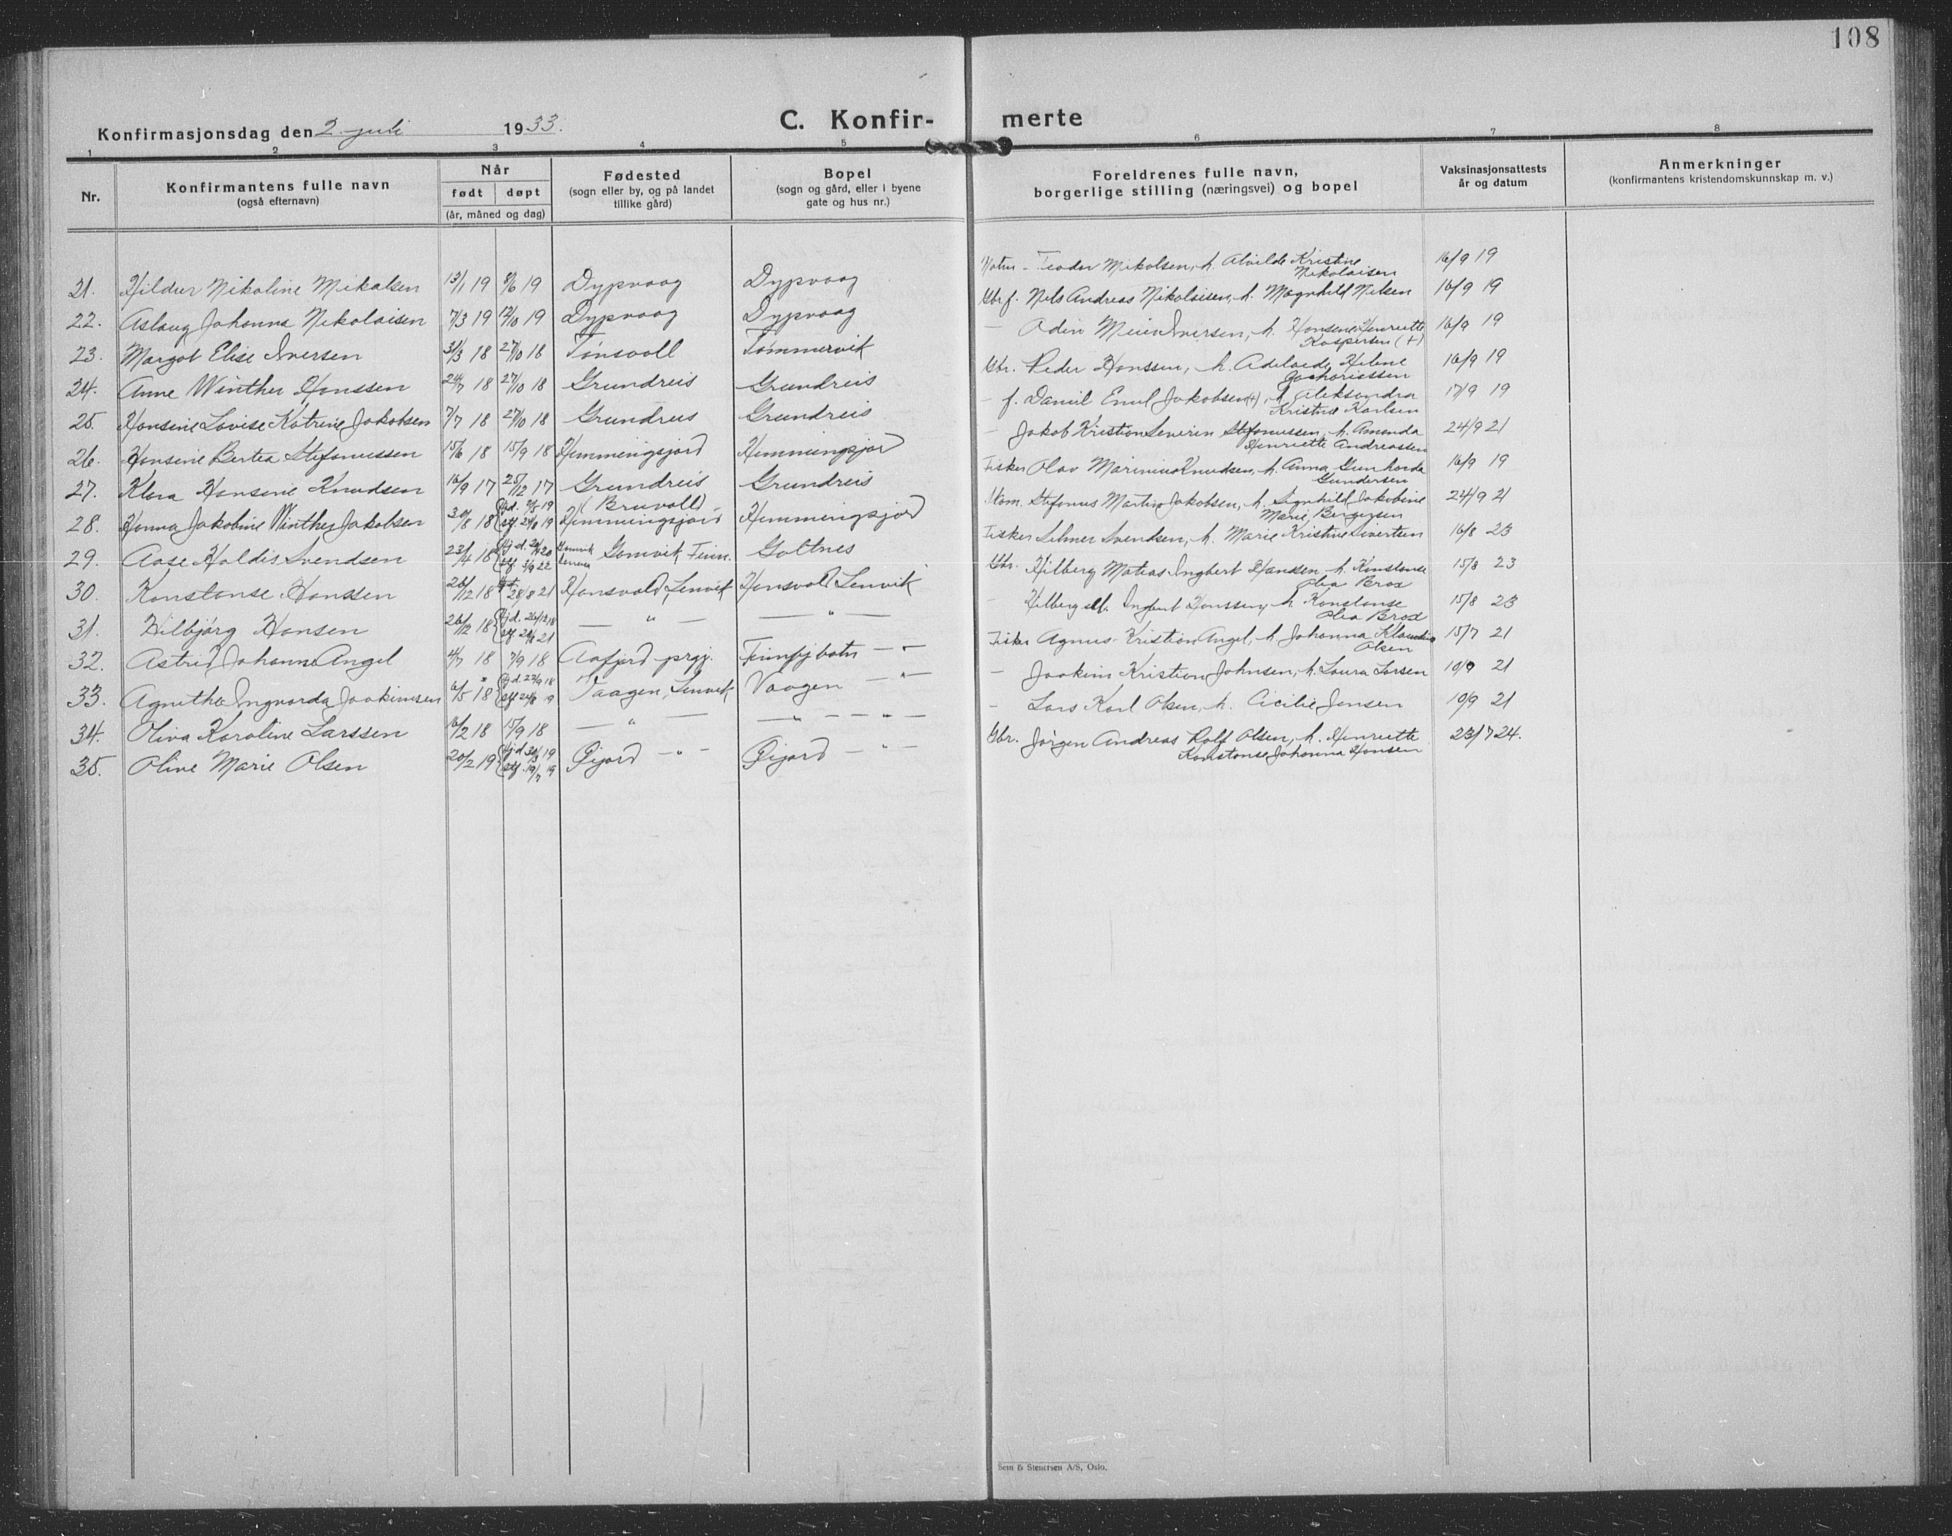 108
Konfirmasjonsdag den 2. juli 1933.
C. Konfir- merte
1 2 3 4 5 6 7 8
Nr.
Konfirmantens fulle navn
(også efternavn)
Når
født døpt
(år, måned og dag)
Fødested
(sogn eller by, og på landet
tillike gård)
Bopel
(sogn og gård, eller i byene
gate og hus nr.)
Foreldrenes fulle navn,
borgerlige stilling (næringsvei) og bopel
Vaksinasjonsattests
år og datum
Anmerkninger
(konfirmantens kristendomskunnskap m. v.)
21. Hildur Nikoline Mikalsen 13/1 19 8/6 19 Dypvaag Dypvaag Teodor Mikalsen, h. Alvilde Kristine Nikolaisen 16/9 19
22. Aslaug Johanna Nikolaisen 7/3 19 12/10 19 Dypvaag Dypvaag Gbr. f. Nels Andreas Nikolaisen, h. Magnhild Nilsen 16/9 19
23. Margot Elise Iversen 31/3 18 27/10 18 Tønsvoll Tømmervik — Adin Meier Iversen, h. Hansine Henriette Kaspersen (+) 16/9 19
24. Anne Winther Hanssen 24/7 18 27/10 18 Grundreis Grundreis Gbr. Peder Hanssen, h. Adelaide Helene Zachariassen 16/9 19
25. Hansine Lovise Katrine Jakobsen 7/7 18 27/10 18 Grundreis Grundreis — f. Daniil Emil Jakobsen (+), h. Aleksandra Kristine Karlsen 17/9 19
26. Hansine Bertea Stefanussen 15/6 18 15/9 18 Hemmingsjord Hemmingsjord — Jakob Kristian Severin Stefanussen, h. Amanda Henriette Andreassen 24/9 21
27. Klara Hansine Knudsen 16/9 17 25/12 17 Grundreis Grundreis Fisker Olav Marinius Knudsen, h. Anna Gunharda Gundersen 16/9 19
28. Hanna Jakobine Winther Jakobsen 30/8 18 (Bruvoll) Hemmingsjord Hemmingsjord Stefanus Martin Jakobsen, h. Signhild Jakobine Marie Bergersen 24/9 21
29. Aase Haldis Svendsen 23/4 18 Gamvik Finn. Galtnes Fisker Selmer Svendsen, h. Marie Kristine Sivertsen 16/8 23
30. Konstanse Hanssen 26/12 18 28/8 21 Hansvold, Lenvik Hansvold Lenvik Gbr. Hilberg Matias Ingbert Hansen, h. Konstanse Olea Brox 15/8 23
31. Hilbjørg Hansen 26/12 18 — " — — " — — Hilberg M. Ingbert Hanssen, h. Konstanse Olea Brox 15/8 23
32. Astrid Johanne Angel 4/7 18 7/9 18 Aafjord prgj. Finnfjbotn — " Fisker Agnus Kristian Angel, h. Johanna Klaudia Olsen 15/7 21
33. Agnethe Ingvarda Joakimsen 6/5 18 Vaagen, Lenvik Vaagen — " — — Joakim Kristian Johnsen, h. Laura Larsen 10/9 21
34. Oliva Karoline Larssen 16/2 18 15/9 18 — " — — " — " — — Lars Karl Olsen, h. Cicilie Jensen 10/9 21
35. Oline Marie Olsen 20/2 19 Øijord — " — Øijord — " — Gbr. Jørgen Andreas Rolf Olsen, h. Henriette Konstanse Johanna Hansen 23/7 24.
Sem & Stenersen A/S, Oslo.